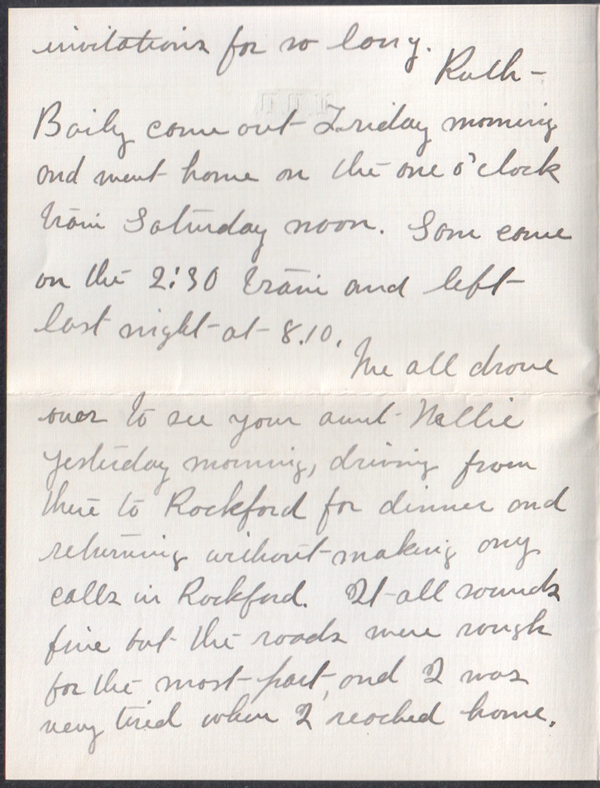 invitations for so long.
Ruth
Baily come out Friday morning
and went home on the one o'clock
train Saturday noon. Some come
on the 2:30 train and left
last night at 8.10.
We all drove
over to see your aunt Nellie
yesterday morning, driving from
there to Rockford for dinner and
returning without making any
calls in Rockford. It all sounds
fine but the roads were rough
for the most part, and I was
very tired when I reached home.